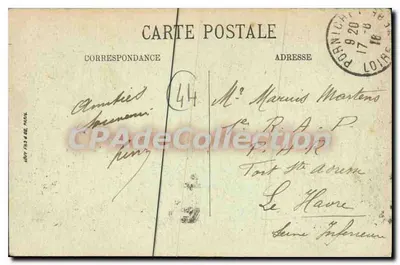 CARTE POSTALE
CORRESPONDANCE
ADRESSE
PORNICHET
9 20
17 - 8
18
LOIRE
44
Amitiés
souvenir
Mr Marius Martens
R. A. P
Fort Ste Adresse
Le Havre
Seine Inférieure
CPADeCollection
LÉVY FILS & Cie, PARIS